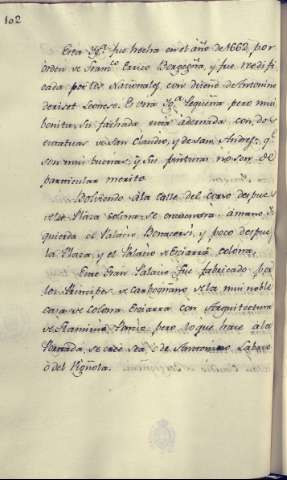 102
Esta Yg.ª fue hecha en el año de 1662 por
orden de Fran.co Enrico Borgogña, y fue reedifi
cada por los Nacionales, con diseño de Antonino
derizet Leones. Esta Yg.ª pequeña pero mui
bonita, su fachada esta adornada con dos
estatuas de san Claudio, y de san Andres, q.e
son mui buenas, y sus pinturas no son de
particular merito.
Bolviendo à la calle del corso despues
de la Plaza colona se encuentra, à mano Yz
quierda el Palacio Bonacorsi, y poco despues
la Plaza, y el Palacio de Sciarra colona.
Este Gran Palacio fue fabricado por
los Principes de carbognano de la mui noble
casa de colona Sciarra con Arquitectura
de Flaminio Poncio, pero lo que hace à la
Portada, se cree sea ò de Antonino Labaco
ò del Vigñola.